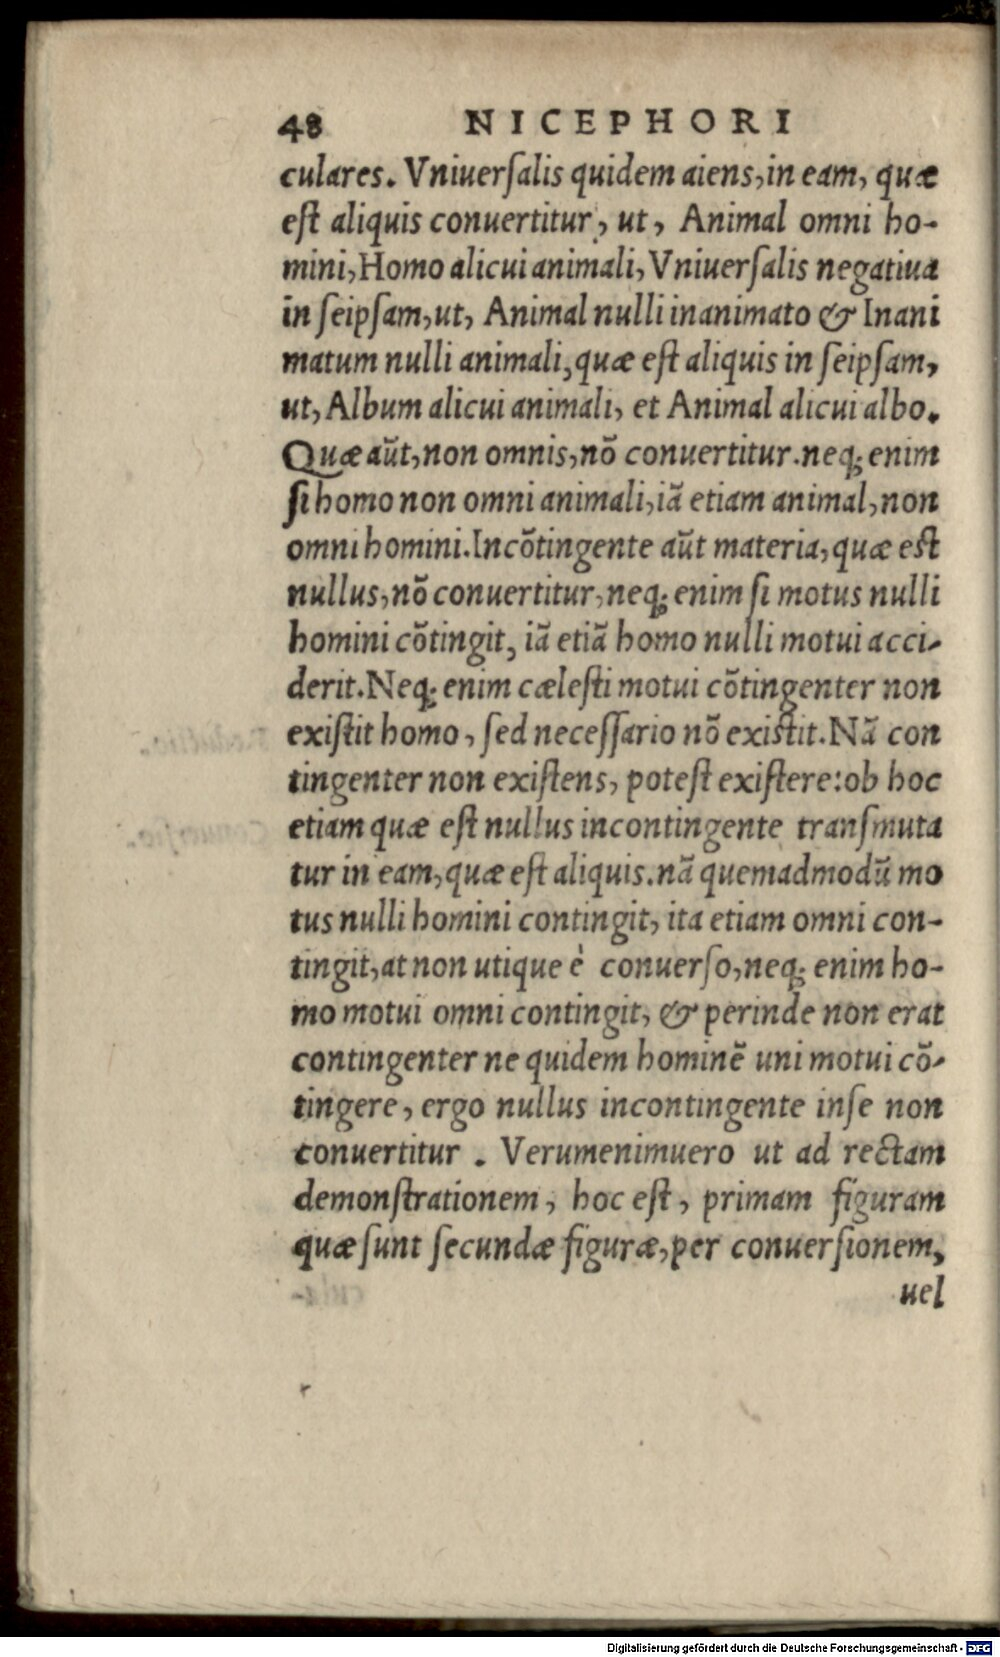 48 NICEPHORI
culares. Vniuerſalis quidem aiens, in eam, quæ
eſt aliquis conuertitur, ut, Animal omni ho-
mini, Homo alicui animali, Vniuerſalis negatiua
in ſeipſam, ut, Animal nulli inanimato & Inani
matum nulli animali, quæ eſt aliquis in ſeipſam,
ut, Album alicui animali, et Animal alicui albo.
Quæ aūt, non omnis, nō conuertitur. neq; enim
ſi homo non omni animali, iā etiam animal, non
omni homini. In cōtingente aūt materia, quæ eſt
nullus, nō conuertitur, neq; enim ſi motus nulli
homini cōtingit, iā etiā homo nulli motui acci-
derit. Neq; enim cæleſti motui cōtingenter non
exiſtit homo, ſed neceſſario nō exiſtit. Nā con
tingenter non exiſtens, poteſt exiſtere: ob hoc
etiam quæ eſt nullus incontingente tranſmuta
tur in eam, quæ eſt aliquis. nā quemadmodū mo
tus nulli homini contingit, ita etiam omni con-
tingit, at non utique è conuerſo, neq; enim ho-
mo motui omni contingit, & perinde non erat
contingenter ne quidem hominē uni motui cō-
tingere, ergo nullus incontingente inſe non
conuertitur. Verumenimuero ut ad rectam
demonſtrationem, hoc eſt, primam figuram
quæ ſunt ſecundæ figuræ, per conuerſionem,
uel
Digitalisierung gefördert durch die Deutsche Forschungsgemeinschaft - DFG